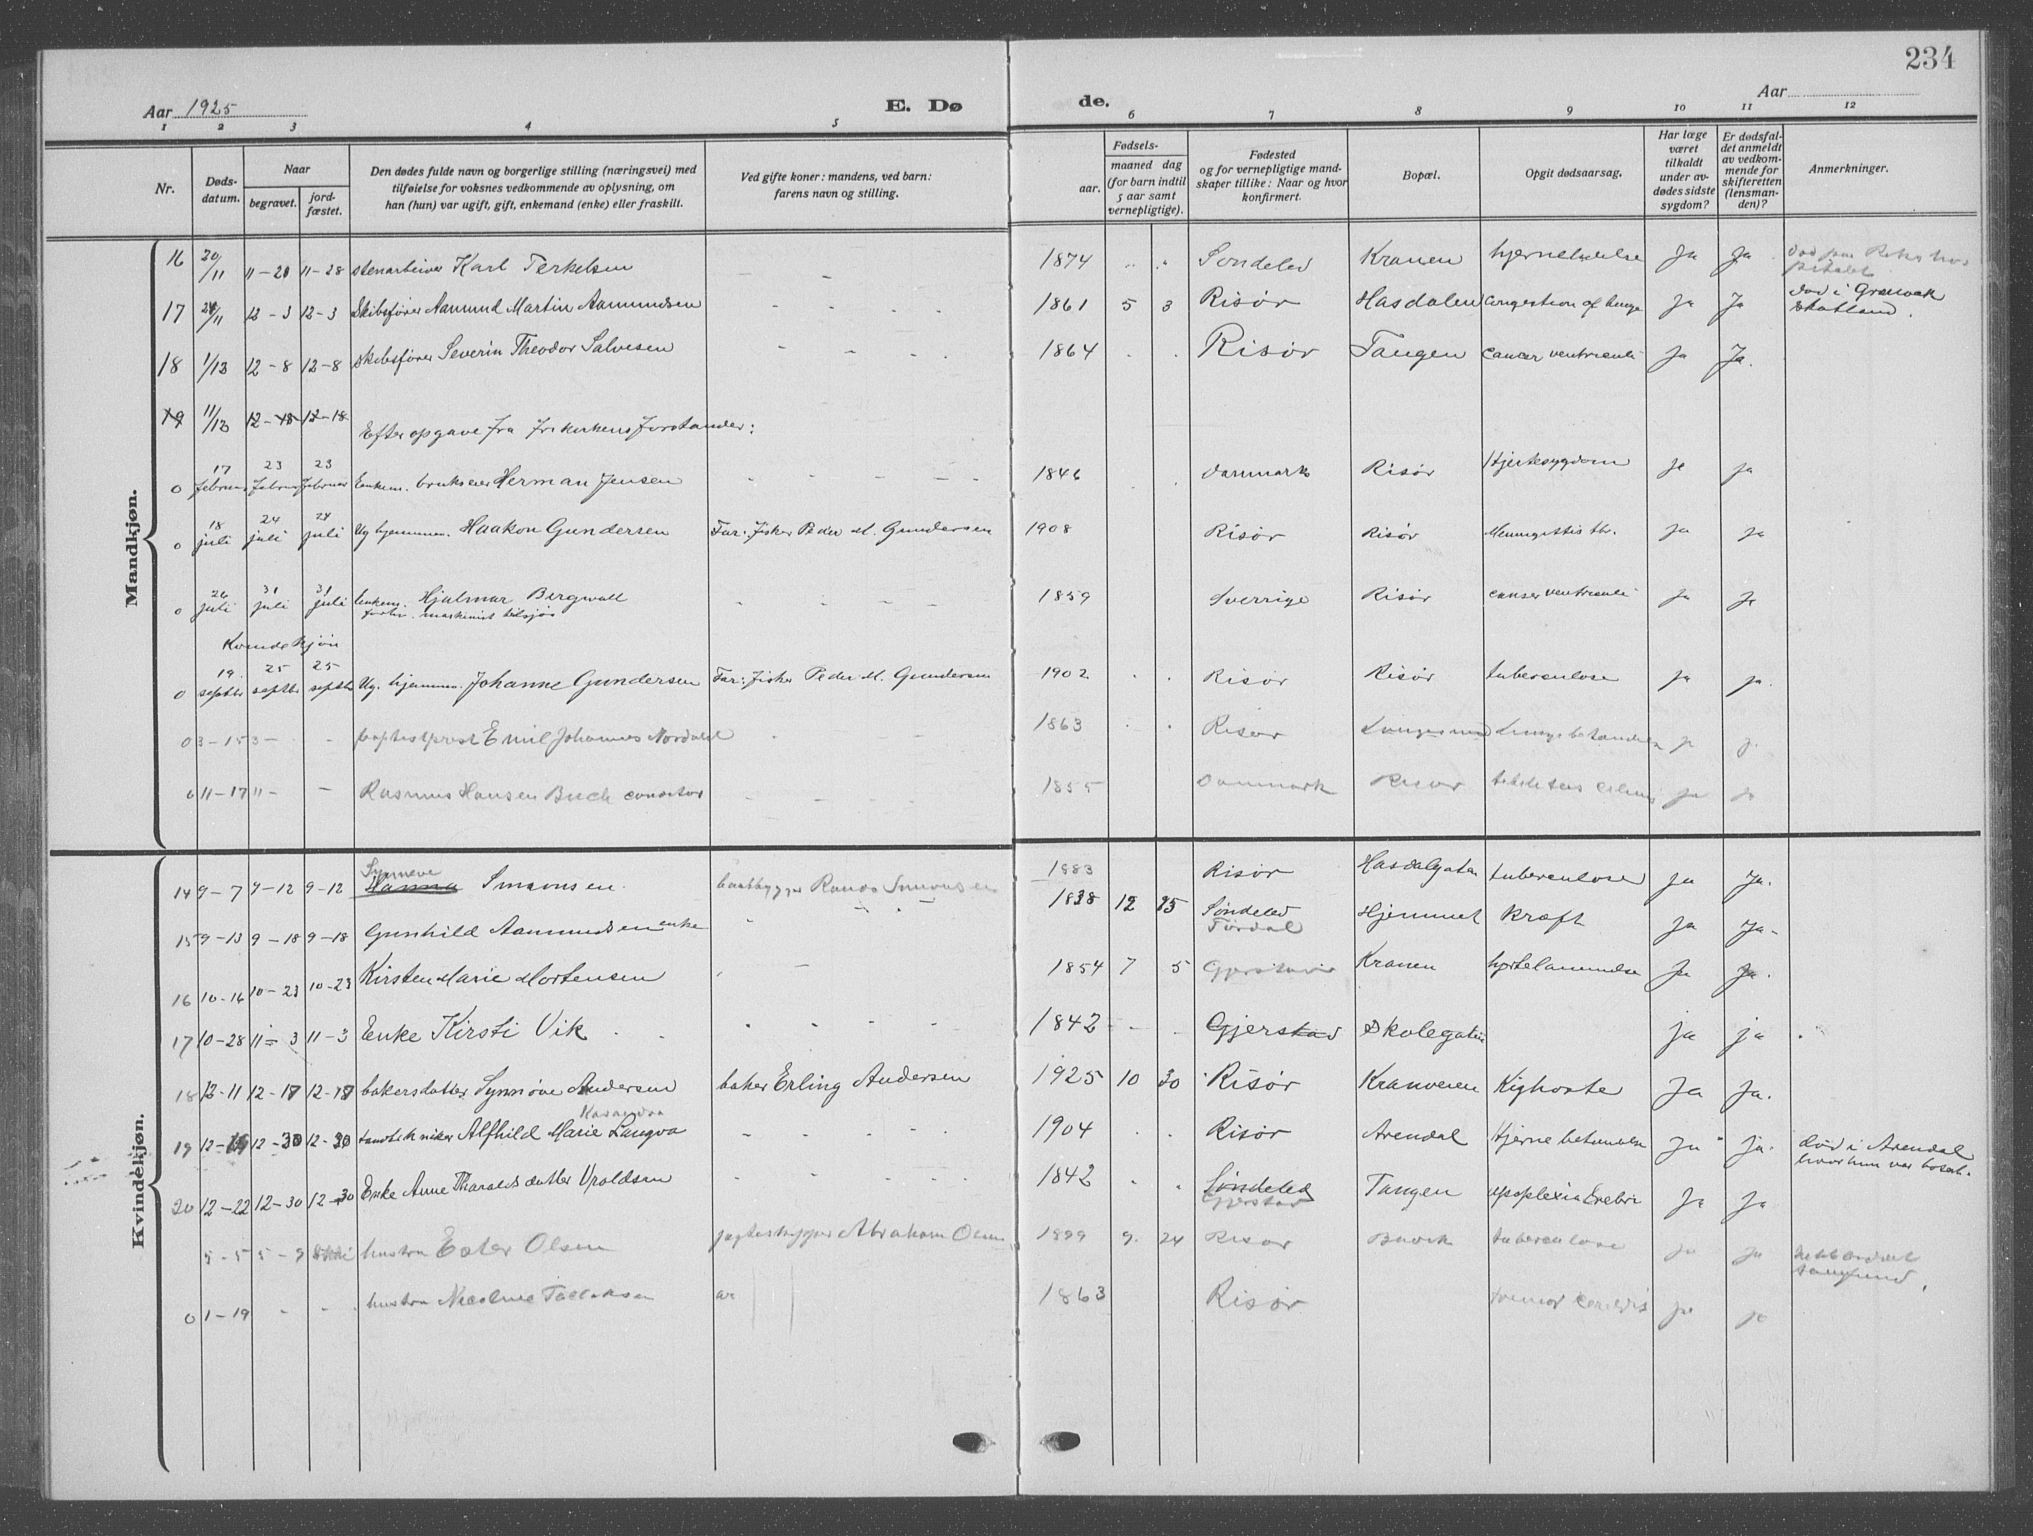 234
Aar 1925
E. Dø
de.
Aar
1 2 3 4 5 6 7 8 9 10 11 12
Nr.
Døds-
datum.
Naar
begravet.
jord-
fæstet.
Den dødes fulde navn og borgerlige stilling (næringsvei) med
tilføielse for voksnes vedkommende av oplysning, om
han (hun) var ugift, gift, enkemand (enke) eller fraskilt.
Ved gifte koner: mandens, ved barn:
farens navn og stilling.
Fødsels-
aar.
maaned dag
(for barn indtil
5 aar samt
vernepligtige).
Fødested
og for vernepligtige mand-
skaper tillike: Naar og hvor
konfirmert.
Bopæl.
Opgit dødsaarsag.
Har læge
været
tilkaldt
under av-
dødes sidste
sygdom?
Er dødsfal-
det anmeldt
av vedkom-
mende for
skifteretten
(lensman-
den)?
Anmerkninger.
Mandkjøn.
16 20/11 11-28 Karl Terkelsen 1874 Søndeled Kranen Ja Ja
17 12-3 12-3 Skibsfører Aamund Martin Aamundsen 1861 5 3 Risør Hasdalen Congestion of lungs Ja Ja Død i
Skotland.
18 1/12 12-8 12-8 Skibsfører Severin Theodor Salvesen 1864 Risør Tangen Cancer ventriculi Ja Ja.
19 11/12 12-18 12-18
Efter opgave fra frikirkens forstander:
0 17 februar 23 februar 23 februar Enkem. brukseier Herman Jensen 1846 Danmark Risør Hjertesygdom ja ja
0 18 juli 24 juli 24 juli Ug. hjemmev. Haakon Gundersen Far: fisker Peder M. Gundersen 1908 Risør Risør ja ja
0 26 juli 31 juli 31 juli Enkem. Hjalmar Bergwall 1859 Sverrige Risør Cancer ventriculi ja ja
maskinist tilsjøs
Kvindekjøn
0 19. septbr 25 septbr 25 septbr Ug. hjemmev. Johanne Gundersen Far: fisker Peder M. Gundersen 1902 Risør Risør tuberculose ja ja.
0 3-15 3- baptistprest Emil Johannes Nordahl 1863 Risør ja
0 11-17 11- Rasmus Hansen Buch 1855 Danmark Risør ja ja
Kvindekjøn.
14 9-7 9-12 9-12 Synneve Hanna Simonsen 1883 Risør Hasdalgaten tuberculose ja Ja.
15 9-13 9-18 9-18 Gunhild Aamundsen enke 1838 12 Søndeled Hjemmet Kræft Ja Ja
16 10-16 10-23 10-23 Kirsten Marie Mortensen 1854 7 5 Kranen Ja Ja.
17 10-28 11-3 11-3 Enke Kirsti Vik 1842 Gjerstad Skolegaten ja ja
18 12-11 12-17 12-17 bakersdatter Synnøve Andersen baker Erling Andersen 1925 10 30 Risør Kranveien Kighoste Ja Ja.
19 12-30 12-30 Alfhild Marie Langvo 1904 Risør Arendal Ja Ja. død i Arendal
hvor hun var bosat.
20 12-22 12-30 12-30 Enke Anne Tharaldsdatter Vroldsen 1842 Søndeled Tangen Ja Ja
Gjerstad
5-5 5-9 hustru Ester Olsen Abraham Olsen 1899 9. 24 Risør tuberculose ja ja
0 1-19 hustru 1863 Risør ja ja